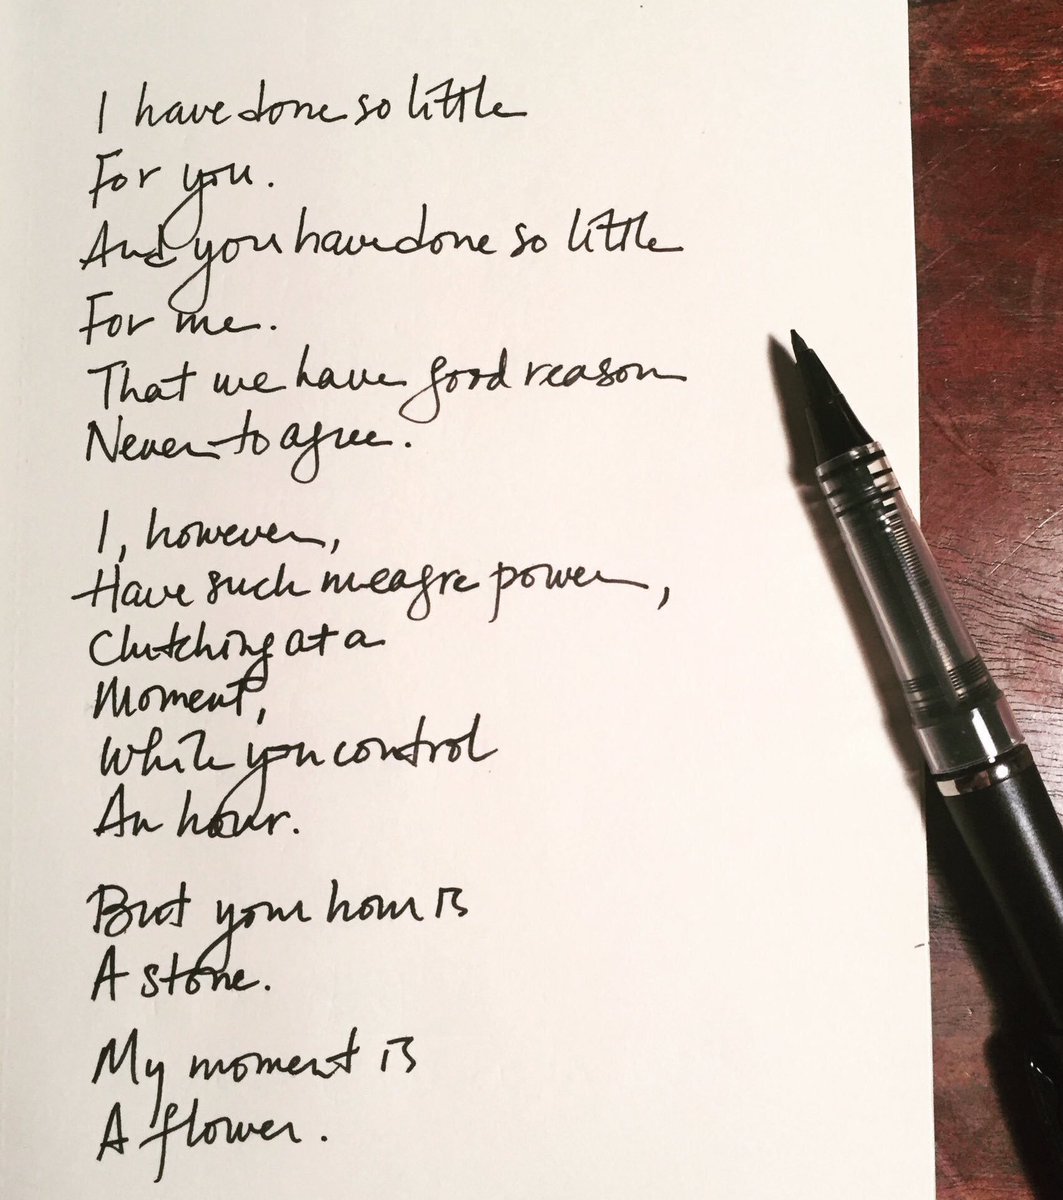 I have done so little
For you.
And you have done so little
For me.
That we have good reason
Never to agree.
I, however,
Have such meagre power,
Clutching at a
Moment,
While you control
An hour.
But your hour is
A stone.
My moment is
A flower.